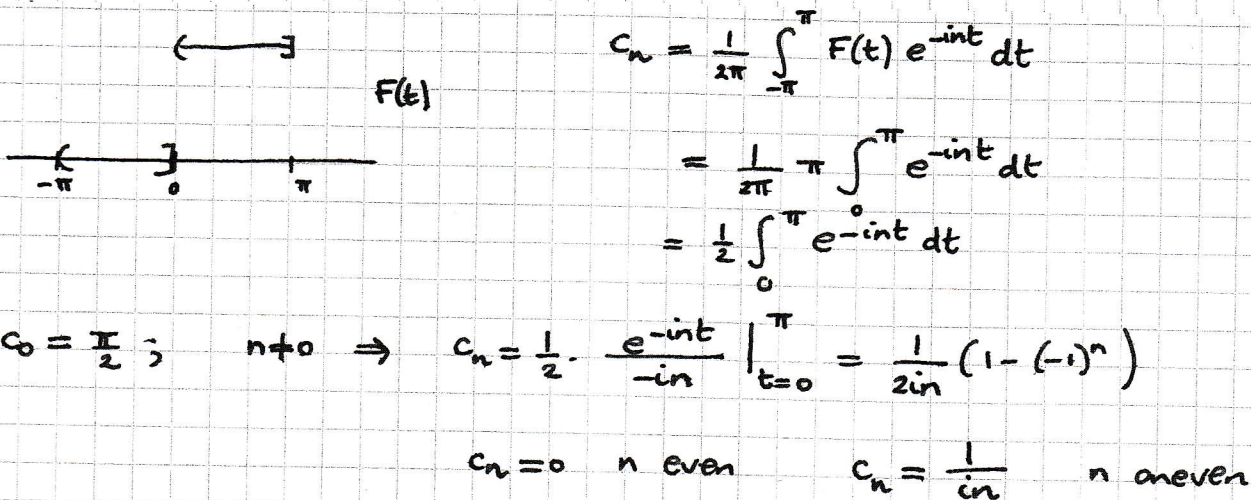 c_n = \frac{1}{2\pi} \int_{-\pi}^{\pi} F(t) e^{-int} dt
F(t)
-π 0 π
= \frac{1}{2\pi} π \int_{0}^{\pi} e^{-int} dt
= \frac{1}{2} \int_{0}^{\pi} e^{-int} dt
c_0 = \frac{\pi}{2} ; n ≠ 0 ⇒ c_n = \frac{1}{2} . \frac{e^{-int}}{-in} |_{t=0}^{\pi} = \frac{1}{2in} (1 - (-1)^n)
c_n = 0 n even c_n = \frac{1}{in} n oneven